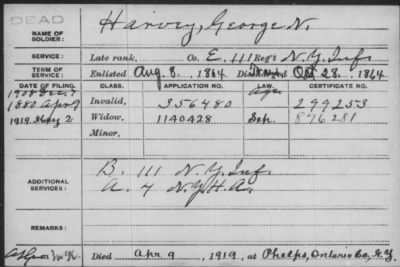 DEAD
NAME OF SOLDIER: Harvey, George N.
SERVICE: Late rank, Co. E, 111 Reg't N.Y. Inf.
TERM OF SERVICE: Enlisted Aug. 8, 1864 Oct 28, 1864
DATE OF FILING. CLASS. APPLICATION NO. LAW. CERTIFICATE NO.
1880 Apr 9 Invalid, 356480 299253
1919 2 Widow, 1140428 Sep. 876281
Minor,
ADDITIONAL SERVICES: B. 111 N.Y. Inf.
A. 4 N.Y.H.A.
REMARKS:
Died Apr. 9, 1919, at Phelps, Ontario Co, N.Y.